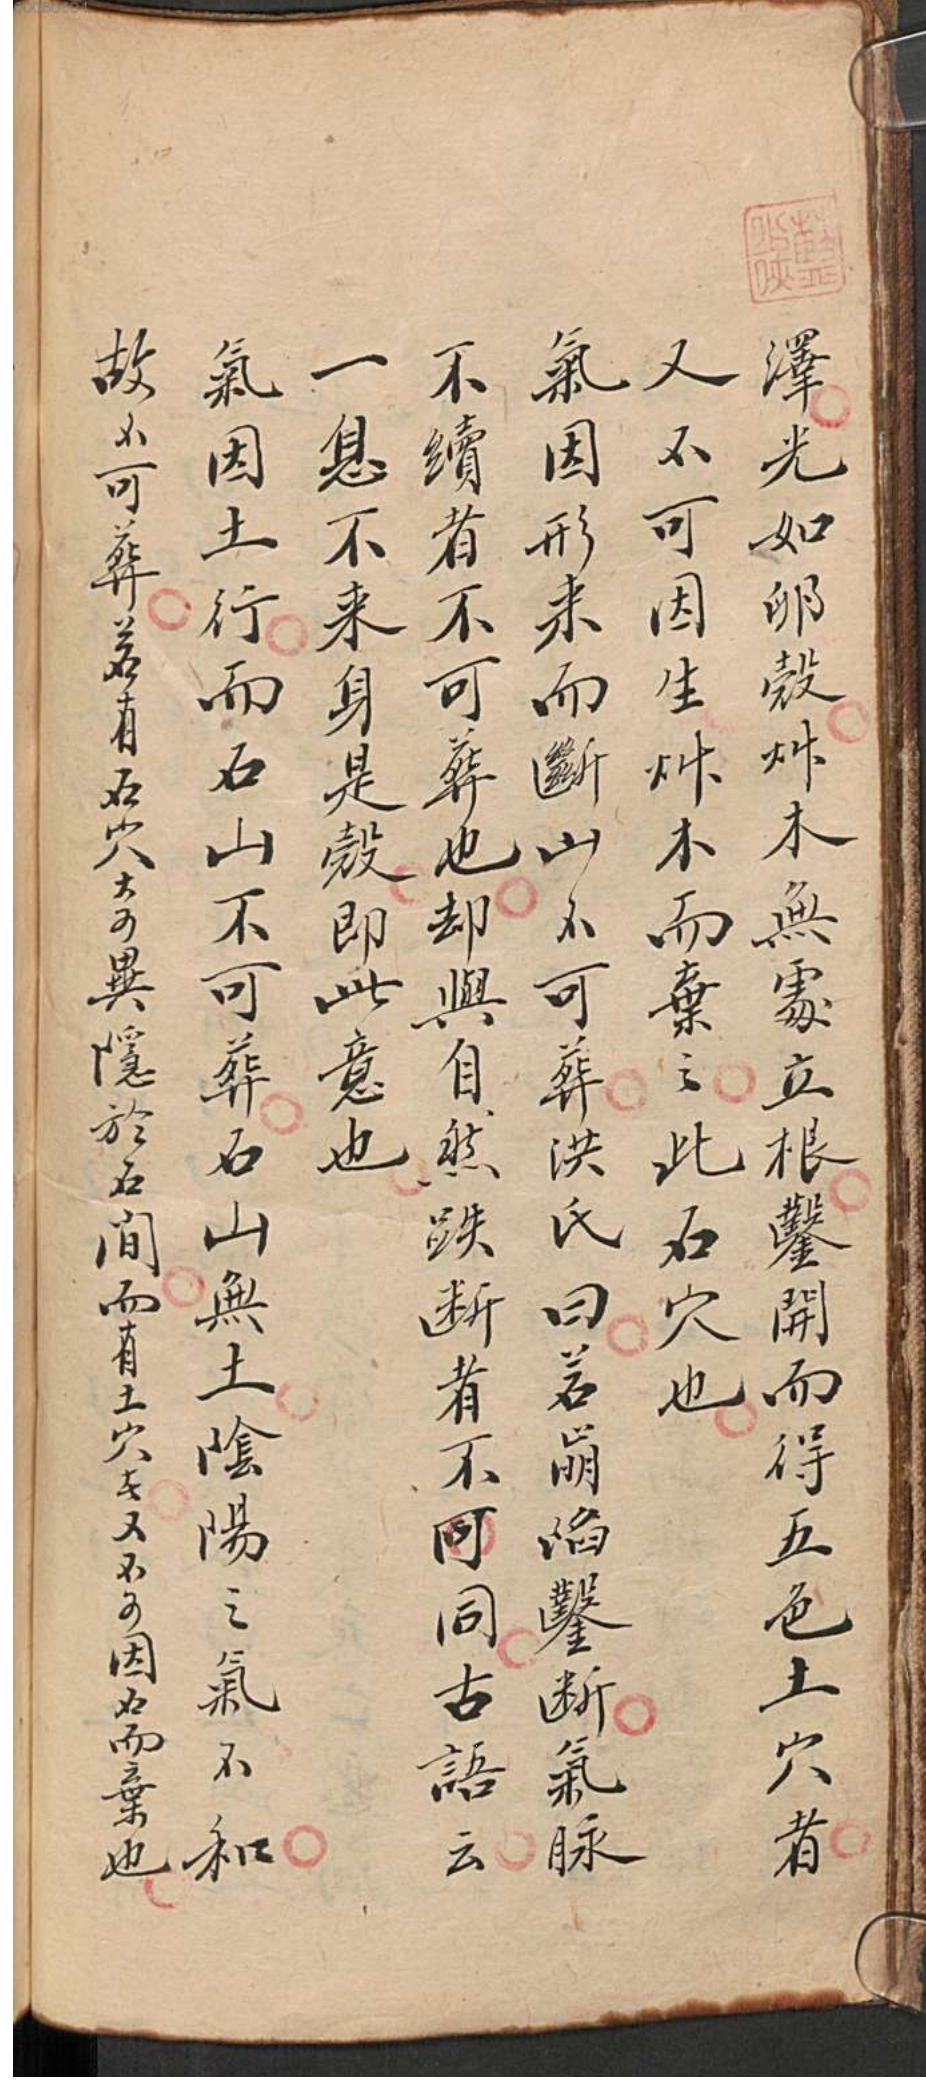 澤光如卵殼艸木無處立根鑿開而得五色土穴者
又不可因生艸木而棄之此石穴也
氣因形来而斷山不可葬洪氏曰若崩陷鑿断氣脉
不續者不可葬也却與自然跌断者不可同古語云
一息不来身是殼即此意也
氣因土行而石山不可葬石山無土陰陽之氣不和
故不可葬若有石穴大可異隱於石間而有土穴者又不可因石而棄也